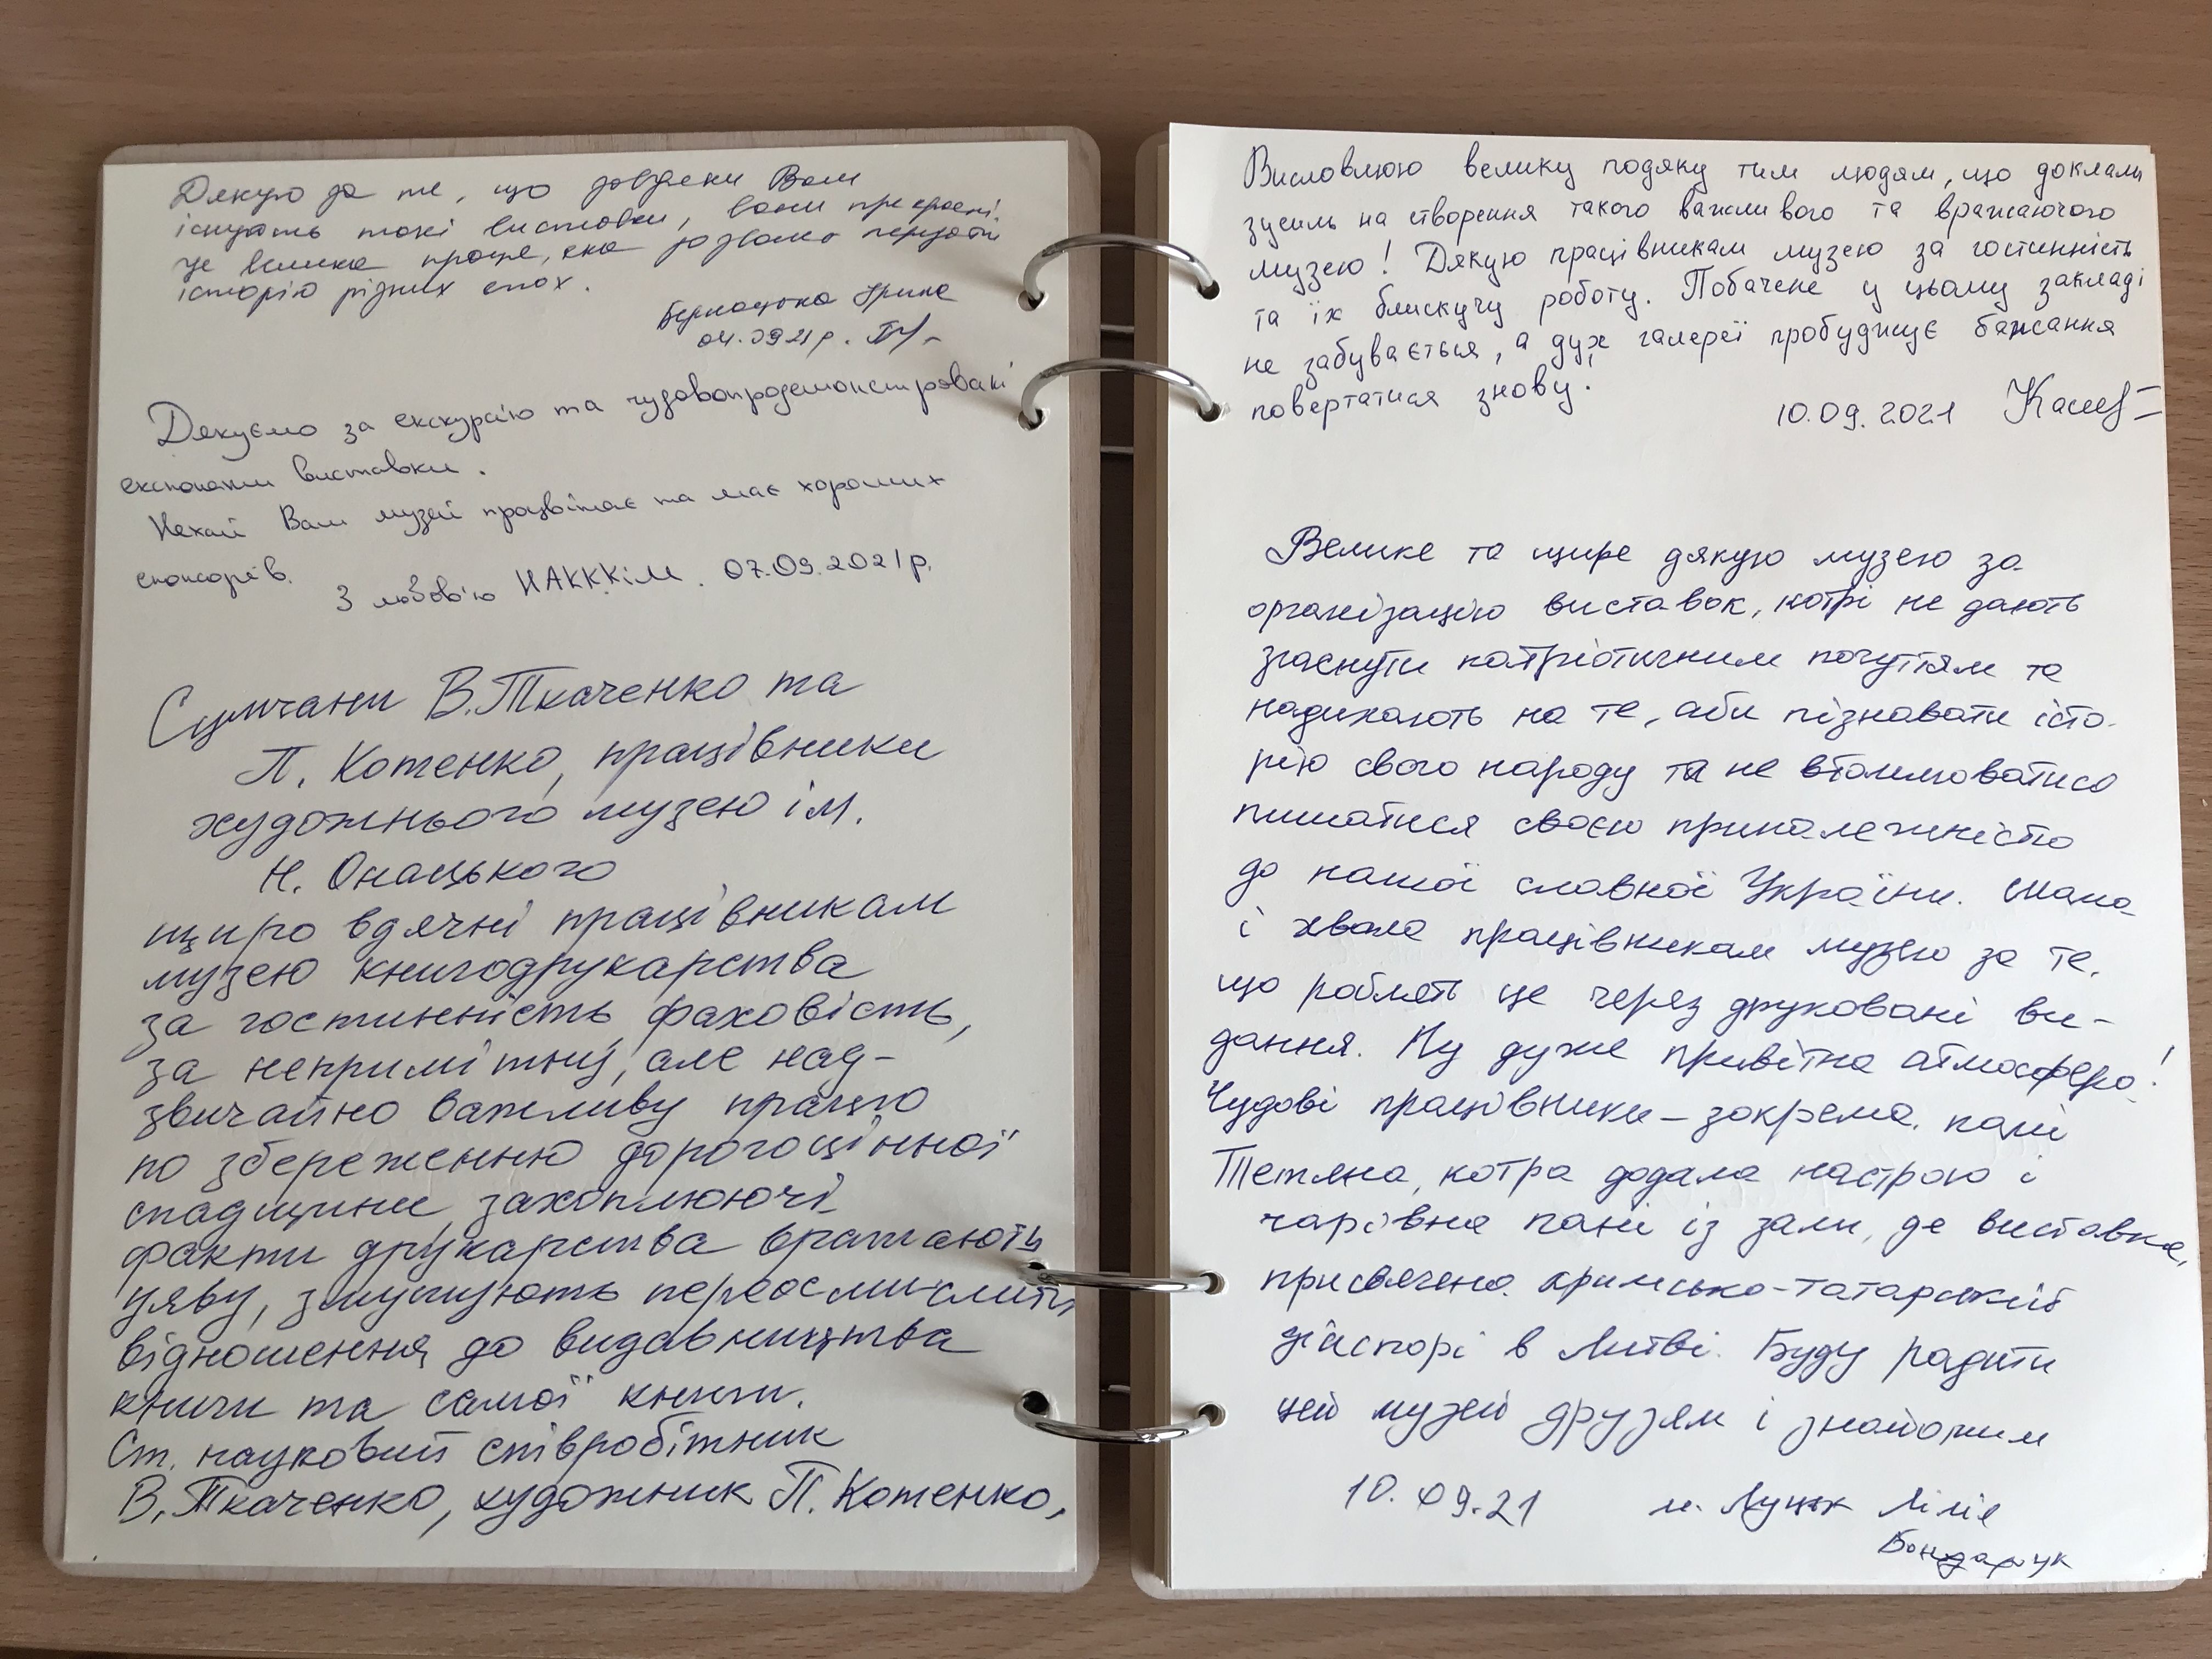 Дякую за те, що завдяки Вам
існують такі виставки, вони прекрасні.
це велика праця, яка дозволяє передати
історію різних епох.
Ірина
04.09 21р.
Дякуємо за екскурсію та чудовопродемонстровані
експонати виставки.
Нехай Ваш музей процвітає та має хороших
спонсорів.
З любов'ю НАКККіМ. 07.09.2021р.
Сумчани В.Ткаченко та
П. Котенко, працівники
художнього музею ім.
Н. Онацького
щиро вдячні працівникам
музею книгодрукарства
за гостинність, фаховість,
за непримітну, але над-
звичайно важливу працю
по збереженню дорогоцінної
спадщини, захоплюючі
факти друкарства вражають
уяву, змушують переосмислити
відношення до видавництва
книги та самої книги.
Ст. науковий співробітник
В.Ткаченко, художник П. Котенко,
Висловлюю велику подяку тим людям, що доклали
зусиль на створення такого важливого та вражаючого
музею! Дякую працівникам музею за гостинність
та їх блискучу роботу. Побачене у цьому закладі
не забувається, а дух галереї пробуджує бажання
повертатися знову.
10.09.2021
Велике та щире дякую музею за
організацію виставок, котрі не дають
згаснути патріотичним почуттям та
надихають на те, аби пізнавати істо-
рію свого народу та не втомлюватися
пишатися своєю приналежністю
до нашої славної України. Шана
і хвала працівникам музею за те,
що роблять це через друковані ви-
дання. Ну дуже привітна атмосфера!
Чудові працівники – зокрема, пані
Тетяна, котра додала настрою і
чарівна пані із зали, де виставка,
присвячена кримсько-татарській
діаспорі в Литві. Буду радити
цей музей друзям і знайомим
10.09.21 м. Луцьк Лілія
Бондарук